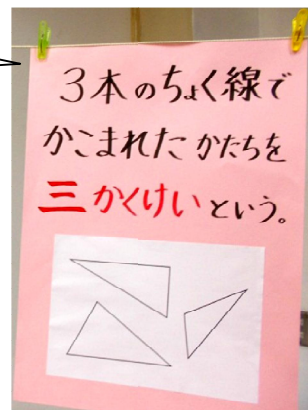 3本のちょく線で
かこまれた かたちを
三かくけいという。